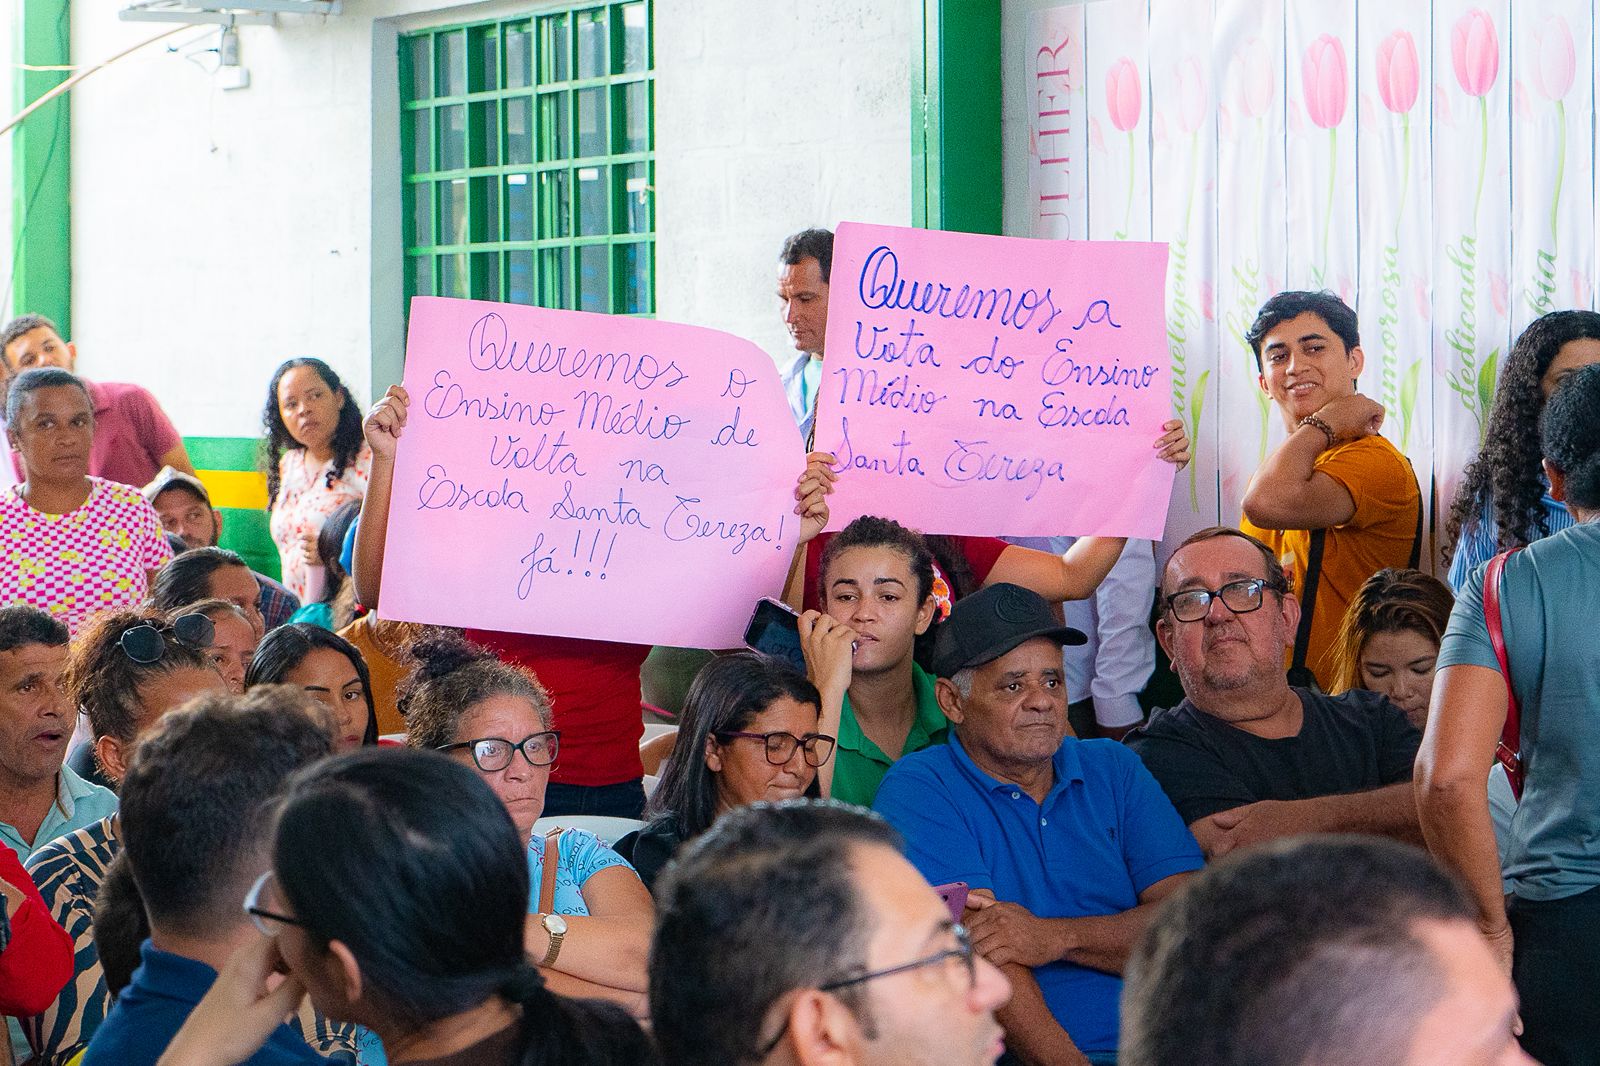 Queremos o
Ensino Médio de
Volta na
Escola Santa Tereza!
Já!!!
Queremos a
Vota do Ensino
Médio na Escola
Santa Tereza
ULHER
inteligente
forte
amorosa
dedicada
bia
love